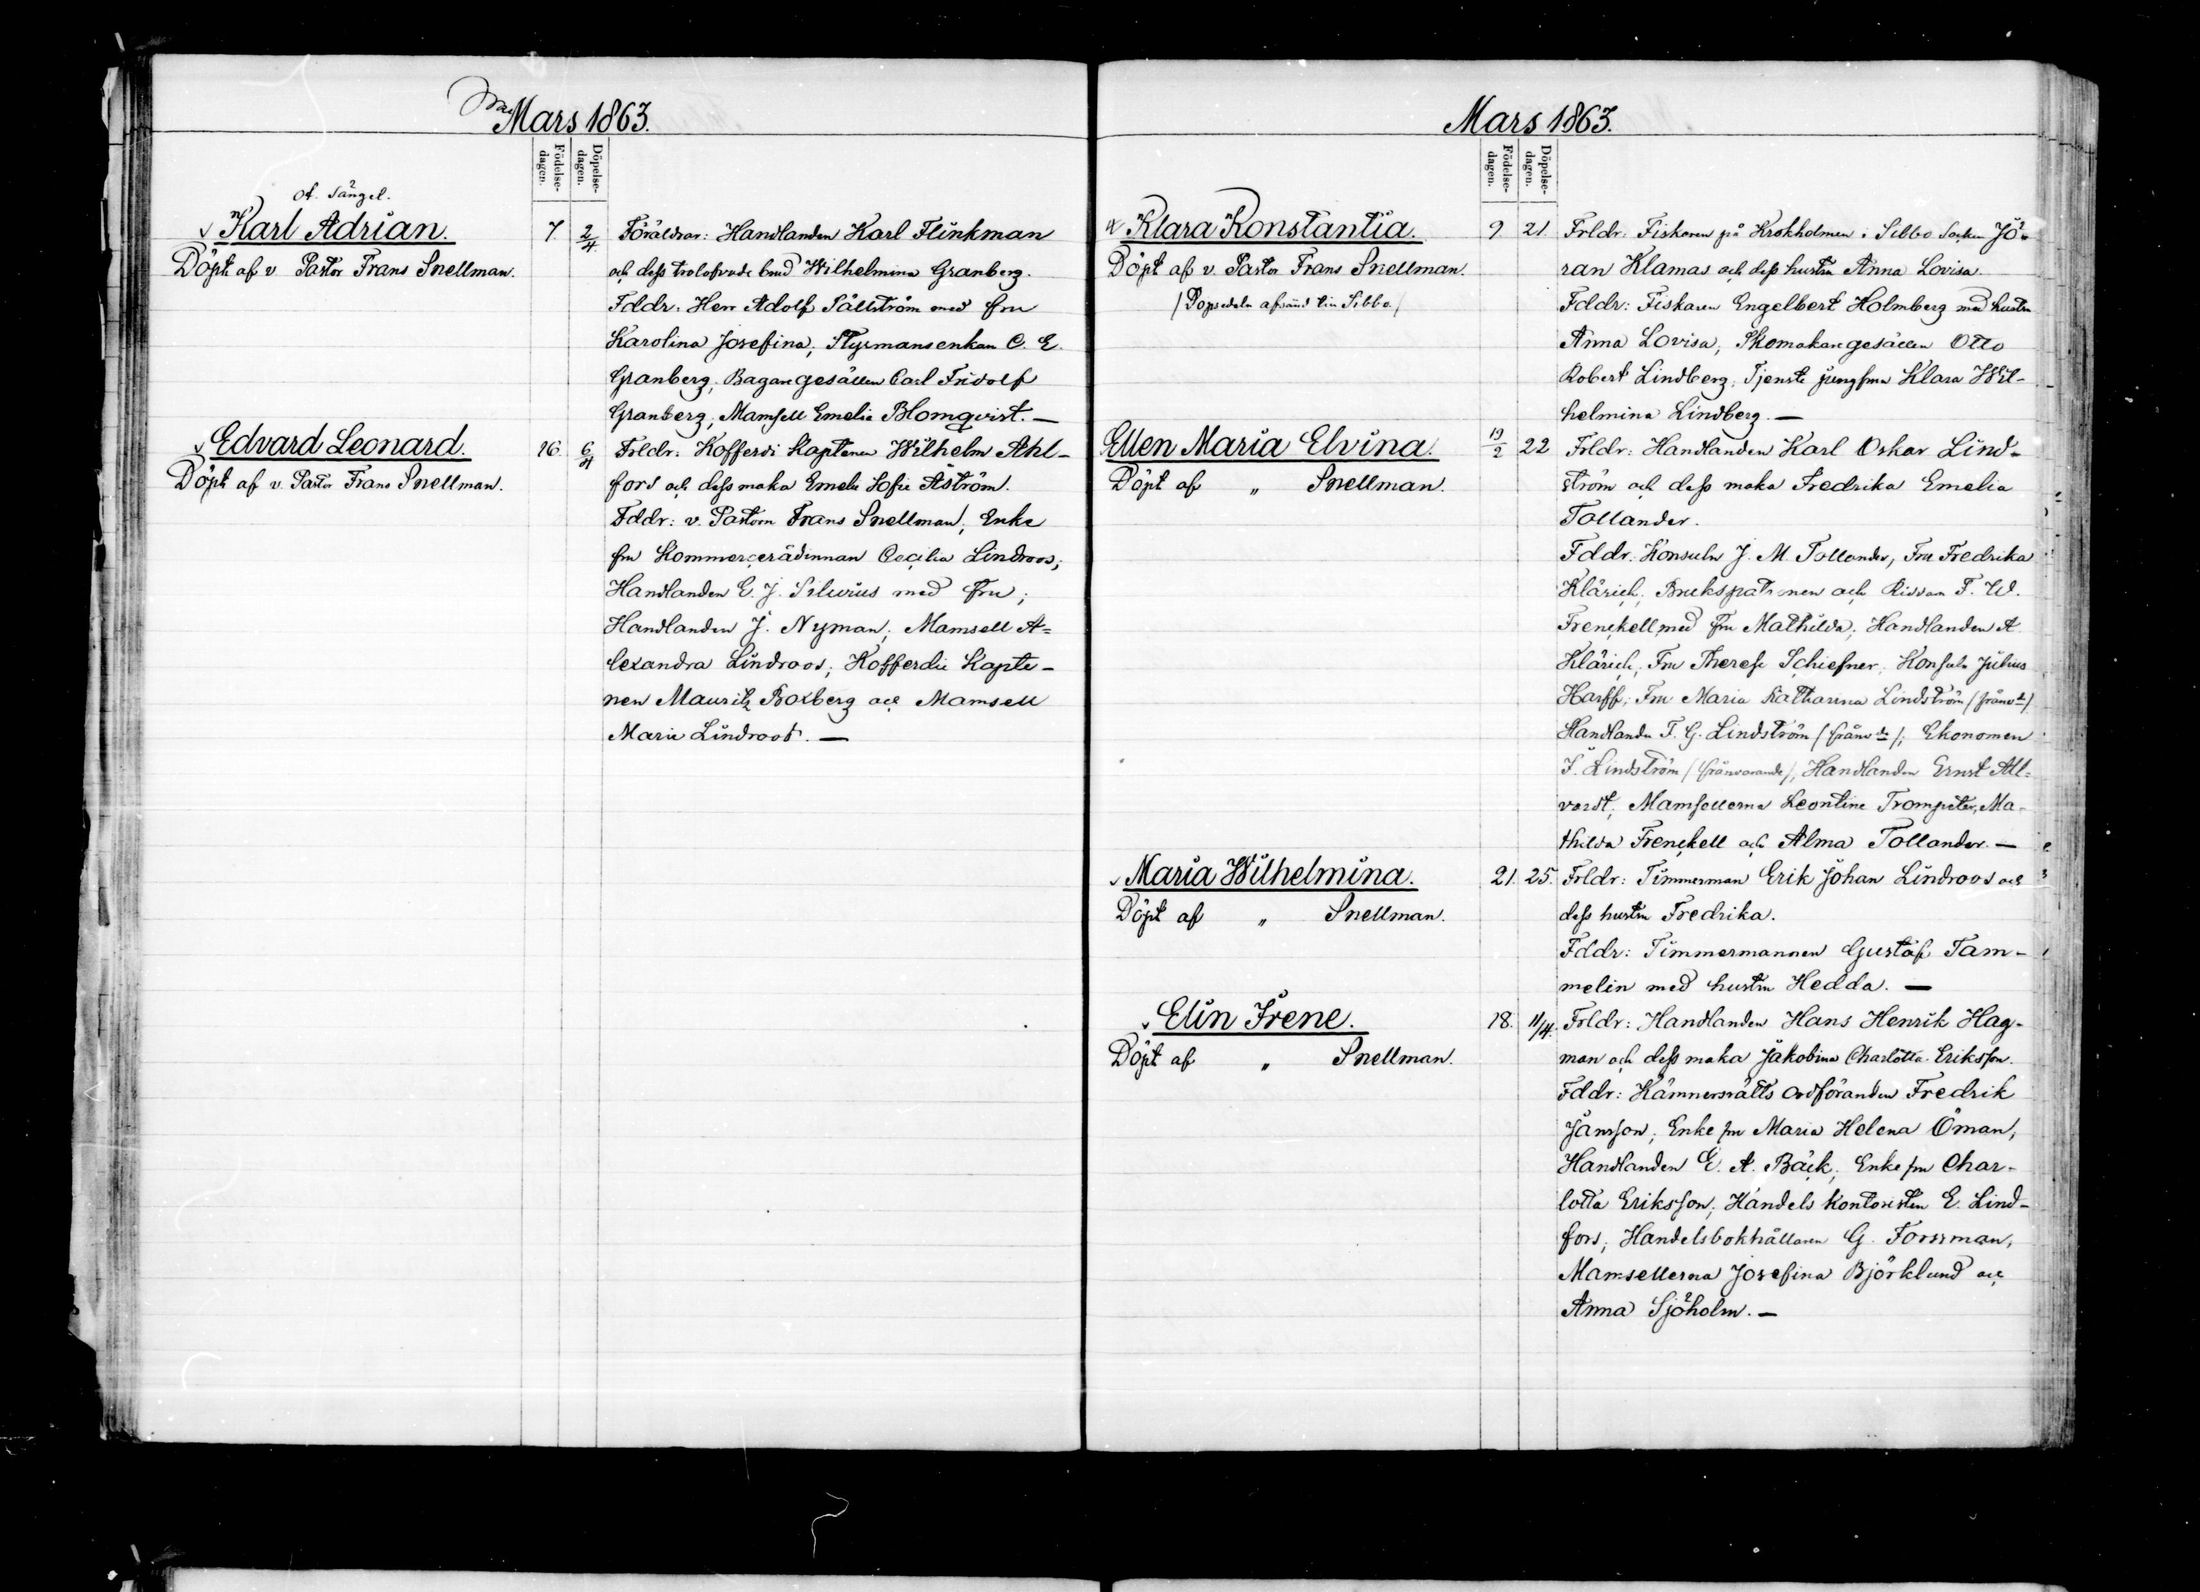 Mars 1863.
Födelse-
dagen.
Döpelse-
dagen.
Karl Adrian. 7. 2/4. Föräldrar: Handlanden Karl Flinkman
Döpt af v. Pastor Frans Snellman. och dess trolofvade brud Wilhelmina Granberg.
Fddr. Herr Adolf Sällström med fru
Karolina Josefina; Styrmansenkan C. E.
Granberg; Bagaregesällen Carl Fridolf
Granberg; Mamsell Emelie Blomqvist. —
Edvard Leonard. 16. 6/4 Frldr: Kofferdi Kaptenen Wilhelm Ahl-
Döpt af v. Pastor Frans Snellman. fors och dess maka Emelie Sofie Åström.
Fddr: v. Pastorn Frans Snellman; Enke
fru Kommerçerådinnan Cecilia Lindroos;
Handlanden E. J. Silvius med fru;
Handlanden J. Nyman; Mamsell A=
lexandra Lindroos; Kofferdie Kapte-
nen Mauritz Boxberg och Mamsell
Marie Lindroos. —
Mars 1863.
Födelse-
dagen.
Döpelse-
dagen.
Klara Konstantia. 9 21. Frldr: Fiskaren på Krokholmen i Sibbo Socken Jö-
Döpt af v. Pastor Frans Snellman. ran Klamas och dess hustru Anna Lovisa.
/ Dopsedeln afsänd till Sibbo. / Fddr: Fiskaren Engelbert Holmberg med hustru
Anna Lovisa; Skomakaregesällen Otto
Robert Lindberg; Tjenste jungfrun Klara Wil-
helmina Lindberg. —
Ellen Maria Elvina. 19/2 22 Frldr: Handlanden Karl Oskar Lind-
Döpt af „ Snellman. ström och dess maka Fredrika Emelia
Tollander.
Fddr: Konsuln J. M. Tollander, Fru Fredrika
Klärich; Brukspatronen och Riddaren F. W.
Frenckell med fru Mathilda; Handlanden A
Klärich; Fru Therese Schiefner; Konsuln Julius
Harff; Fru Maria Katharina Lindström / frånvde /
Handlanden F. G. Lindström / frånvde /; Ekonomen
J. Lindström / frånvarande /; Handlanden Ernst All=
vardt; Mamsellerna Leontine Trompeter, Ma-
thilda Frenckell och Alma Tollander. —
Maria Wilhelmina. 21. 25. Frldr: Timmerman Erik Johan Lindroos och
Döpt af „ Snellman. dess hustru Fredrika.
Fddr: Timmermannen Gustaf Tam-
melin med hustru Hedda. —
Elin Irene. 18. 11/4. Frldr: Handlanden Hans Henrik Hag-
Döpt af „ Snellman. man och dess maka Jakobina Charlotta Eriksson.
Fddr: Kämnersrätts Ordföranden Fredrik
Jansson; Enke fru Maria Helena Öman;
Handlanden E. A. Bäck; Enke fru Char-
lotta Eriksson; Handels kontoristen E. Lind-
fors; Handelsbokhållaren G. Forssman;
Mamsellerna Josefina Björklund och
Anna Sjöholm. —